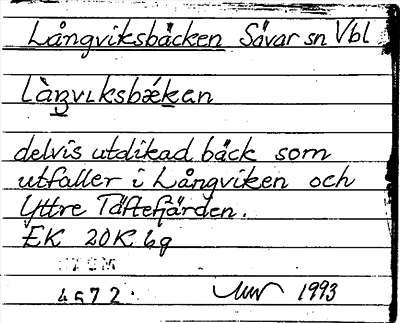 Långviksbäcken Sävar sn Vbl
Làŋvɩksbǽkan
delvis utdikad bäck som
utfaller i Långviken och
Yttre Täftefjärden.
EK 20K 6g
4572. 1993